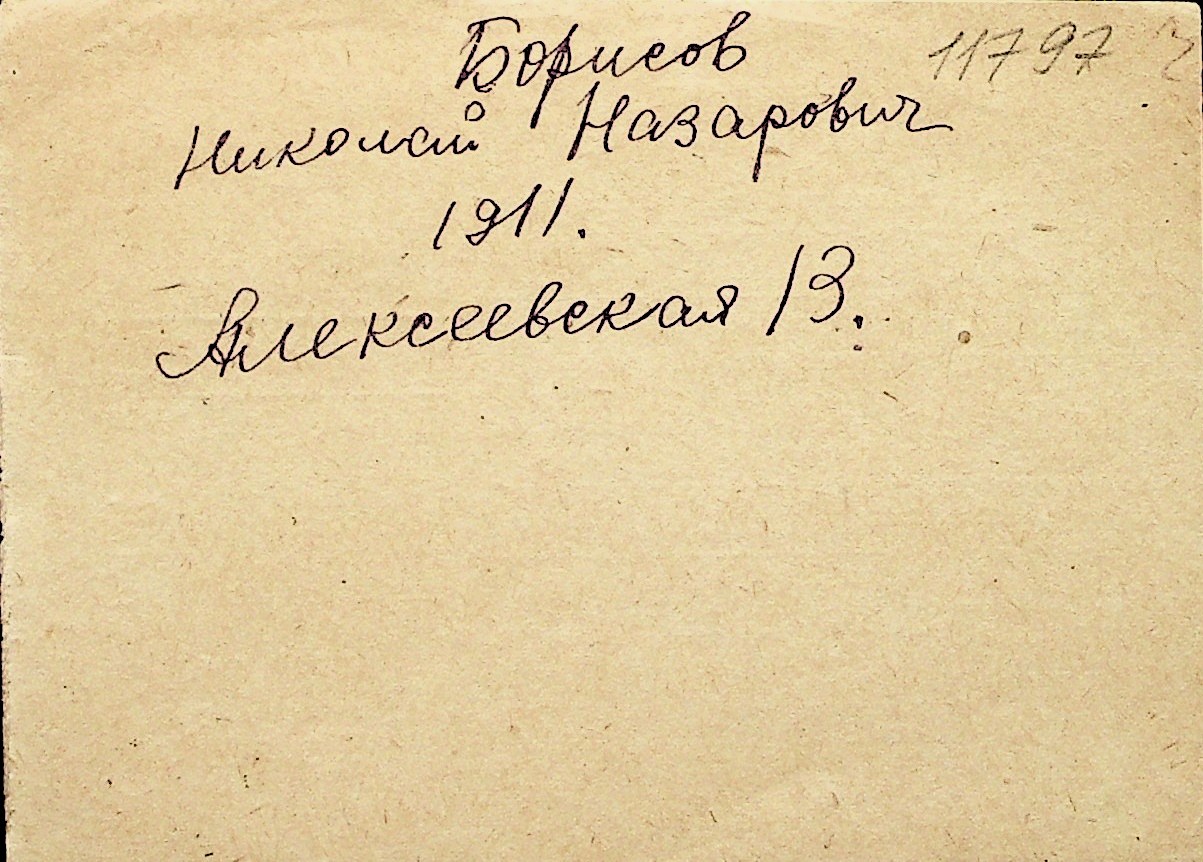 Борисов 11797
Николай Назарович
1911.
Алексеевская 13.